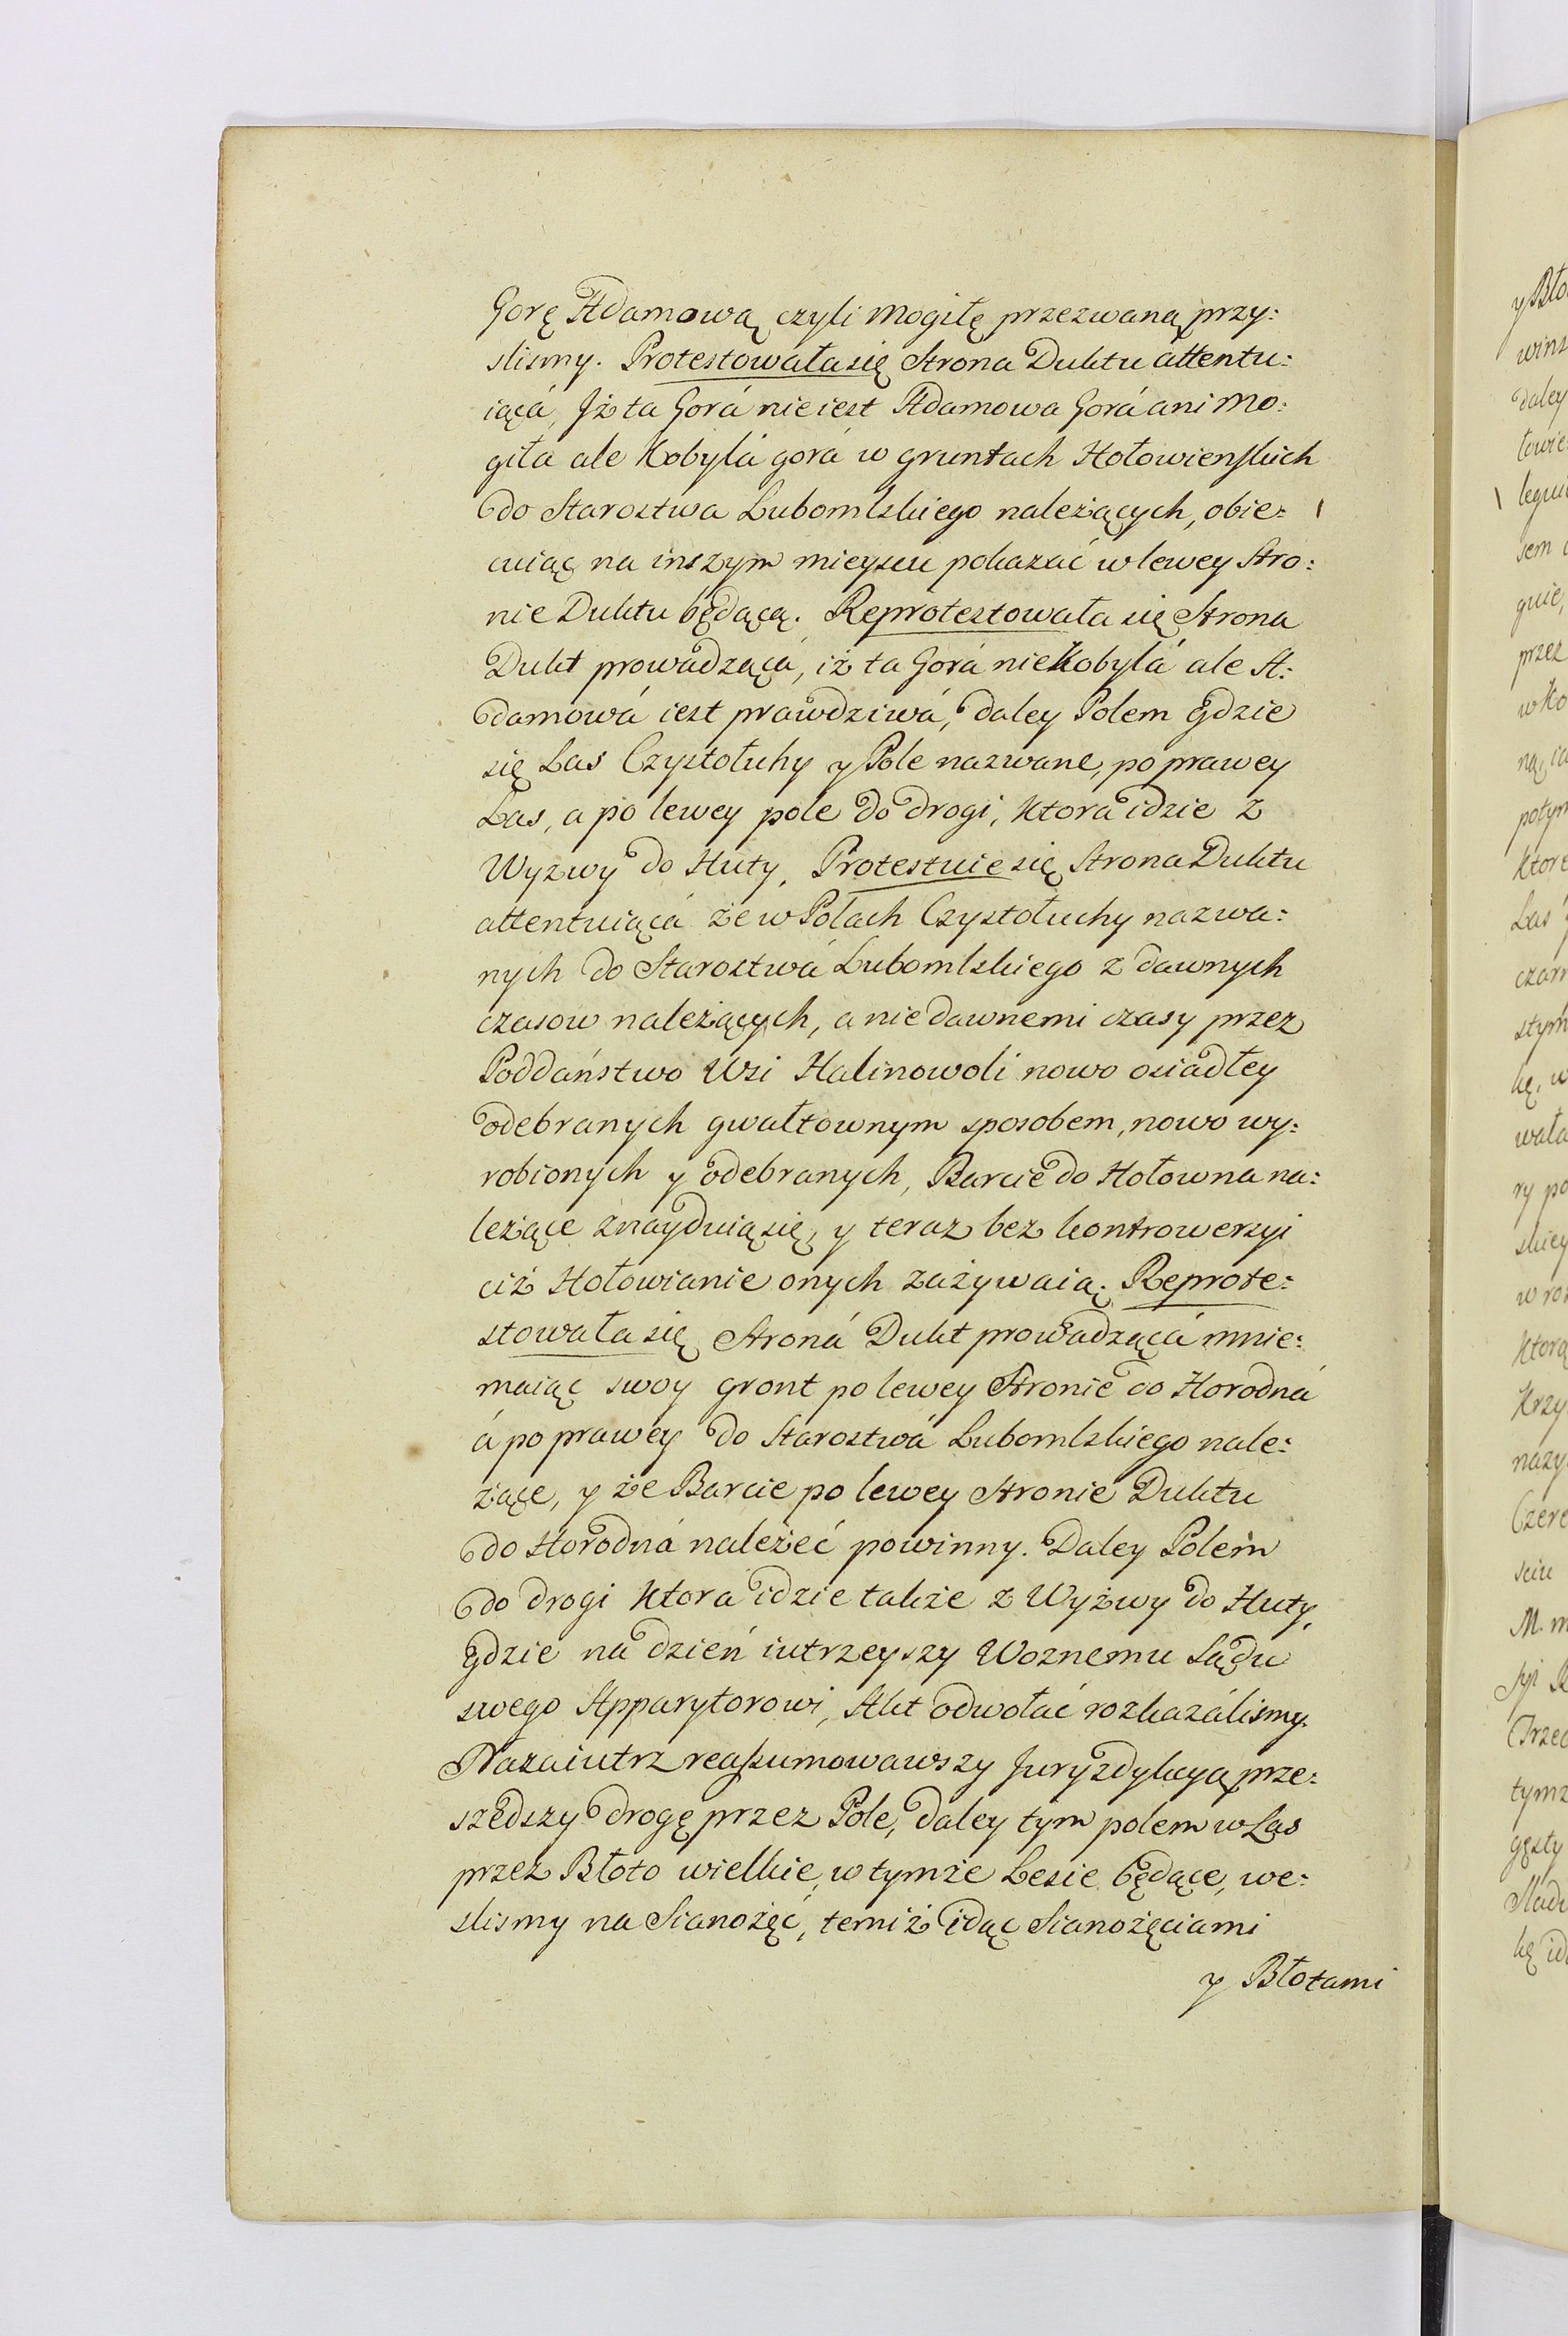 Gorę Adamową czyli Mogiłę przezwaną przy:
slismy. Protestowała się Strona Duktu attentu:
iącá, Jż ta Gorá nie iest Adamowa Gorá ani Mo:
giła ale Kobylá gorá w gruntach Hołowienskich
do Starostwa Lubomlskiego należących, obie:
cuiąc na inszym mieyscu pokazać w lewey Stro:
nie Duktu będącą. Reprotestowała się Strona
Dukt prowadzącá, iż ta Gorá nie Kobylá ale A:
damowá iest prawdziwá, daley Polem gdzie
się Las Czystołuhy y Pole nazwane, po prawey
Las, a po lewey pole do drogi, ktora idzie z
Wyzwy do Huty, Protestuie się Strona Duktu
attentuiącá że w Polach Czystołuchy nazwa:
nych do Starostwá Lubomlskiego z dawnych
czasow należących, a nie dawnemi czasy przez
Poddáństwo Wsi Halinowoli nowo osiadłey
odebranych gwałtownym sposobem, nowo wy:
robionych y odebranych, Barcie do Hołowna na:
leżące znayduią się, y teraz bez kontrowersyi
ciż Hołowianie onych zażywaią. Reprote:
stowała się Stroná Dukt prowadzącá mnie:
maiąc swoy gront po lewey Stronie do Horodná
á po prawey do Starostwá Lubomlskiego nale:
żące, y że Barcie po lewey Stronie Duktu
do Horodná należeć powinny. Daley Polem
do drogi ktora idzie także z Wyżwy do Huty,
gdzie na dzień iutrzeyszy Woznemu Sądu
swego Apparytorowi, Akt odwołać rozkazálismy.
Nazaiutrz reassumowawszy Juryzdykcyą prze:
szedszy drogę przez Pole, daley tym polem w Las
przez Błoto wielkie, w tymże Lesie będące, we:
slismy na Sianożęć, temiż idąc Sianożęciami
y Błotami